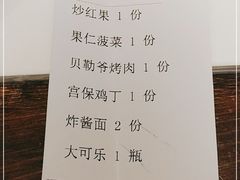 炒红果 1 份
果仁菠菜 1 份
贝勒爷烤肉 1 份
宫保鸡丁 1 份
炸酱面 2 份
大可乐 1 瓶